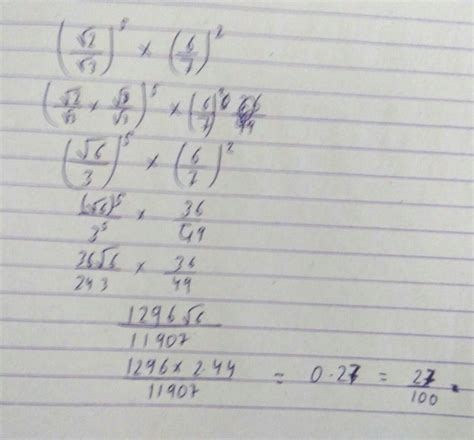 (√2/√3)^5 × (6/7)^2
(√2/√3 × √3/√3)^5 × (6/7)^2
(√6/3)^5 × (6/7)^2
(√6)^5/3^5 × 36/49
36√6/243 × 36/49
1296√6/11907
1296×2.44/11907 = 0.27 = 27/100.